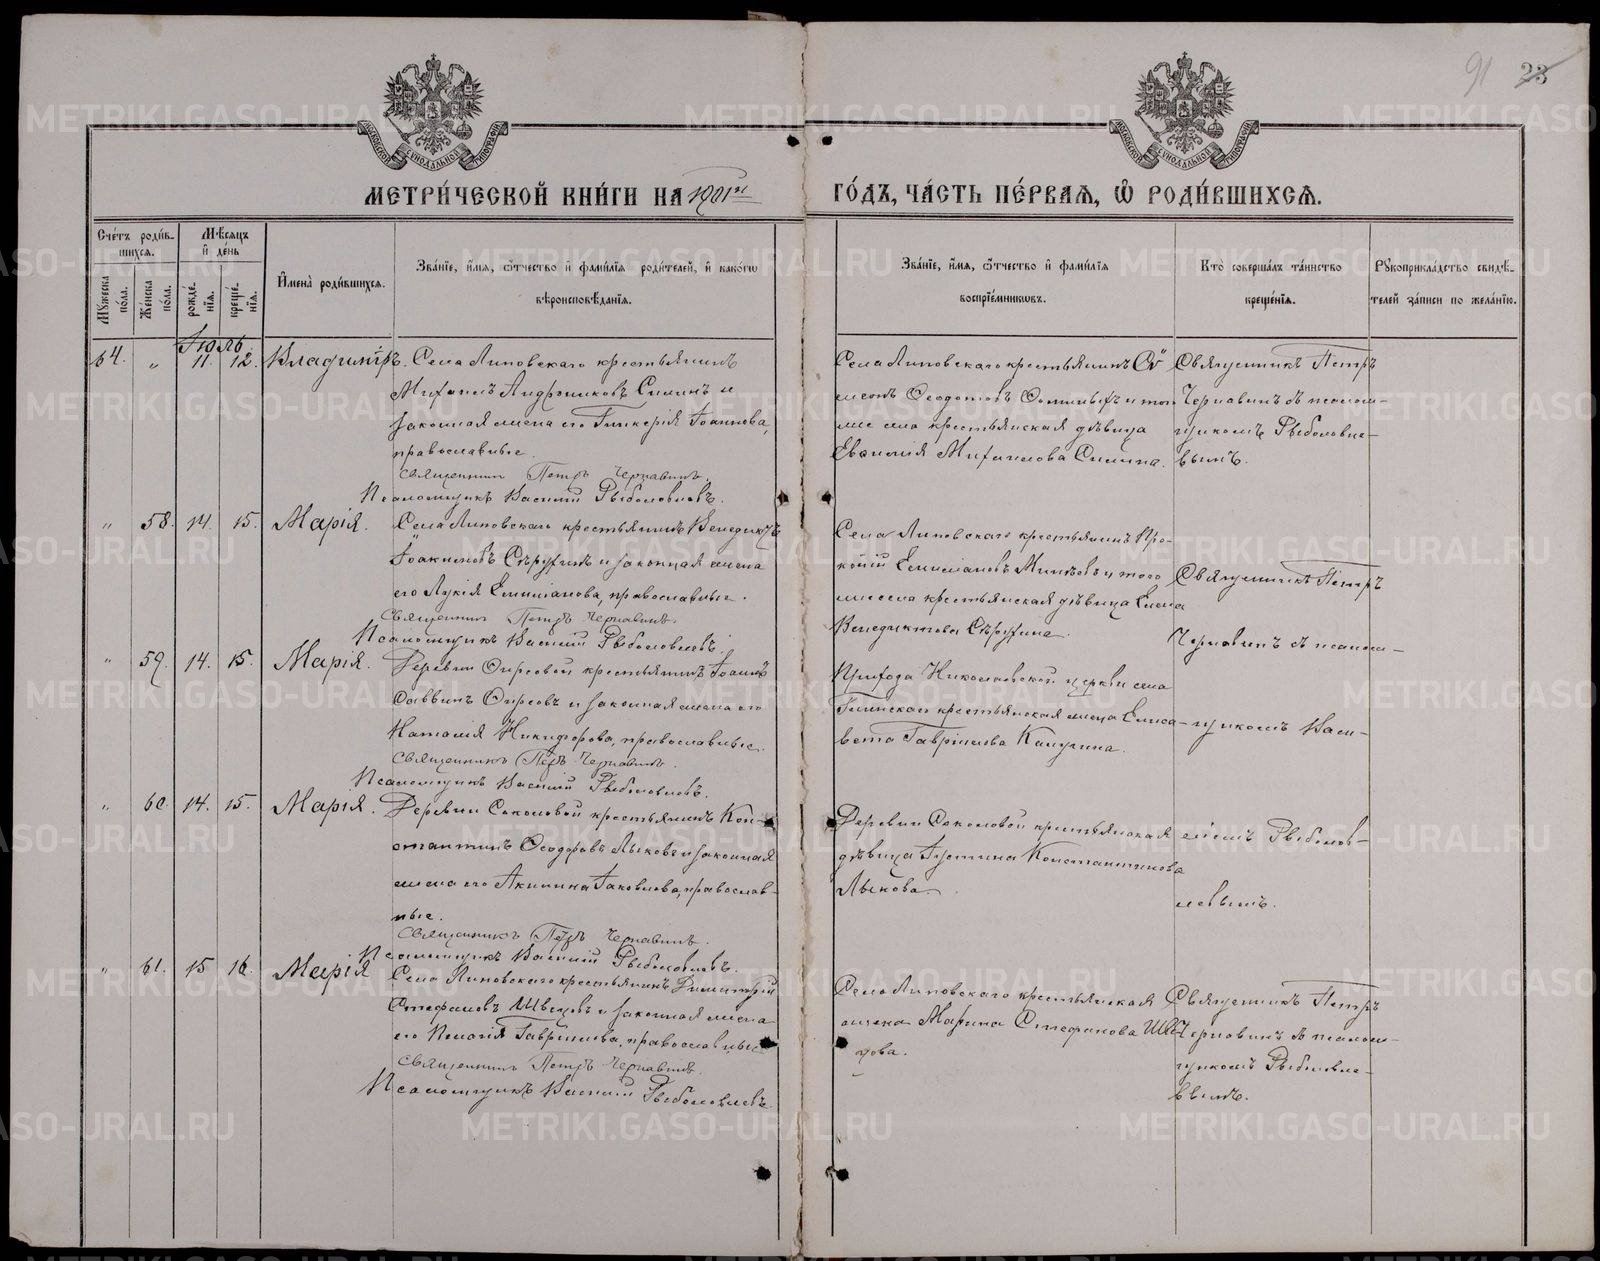 91 23
МОСКОВСКОЙ СѴНОДАЛЬНОЙ ТИПОГРАФІИ
МОСКОВСКОЙ СѴНОДАЛЬНОЙ ТИПОГРАФІИ
МЕТРИ́ЧЕСКОЙ КНИ́ГИ НА 1901й
ГО́ДЪ, ЧА́СТЬ ПЕ́РВАѦ, Ѽ РОДИ́ВШИХСѦ.
Сче́тъ роди́в-
шихсѧ.
Мѣ́сѧцъ
и҆ де́нь
Мꙋ́жеска по́ла.
Же́нска по́ла.
рожде́-
нїѧ.
креще́-
нїѧ.
И҆мена̀ роди́вшихсѧ.
Зва́нїе, и҆́мѧ, ѻ҆́тчество и҆ фами́лїѧ роди́телей, и҆ како́гѡ
вѣроисповѣ́данїѧ.
Зва́нїе, и҆́мѧ, ѻ҆́тчество и҆ фами́лїѧ
воспрїе́мникѡвъ.
Кто̀ соверша́лъ та́инство
креще́нїѧ.
Рꙋкоприкла́дство свидѣ́-
телей за́писи по жела́нїю.
Іюль
64. „ 11. 12. Владиміръ. Села Липовскаго крестьянинъ
Михаилъ Андрониковъ Силинъ и
законная жена его Гликерія Іоаннова,
православные.
Священникъ Петръ Чернавинъ.
Псаломщикъ Василій Рыболовлевъ.
Села Липовскаго крестьянинъ Сѵ-
меонъ Ѳеодотовъ и того
же села крестьянская дѣвица
Евѳимія Михаилова Силина.
Священникъ Петръ
Чернавинъ съ псалом-
щикомъ Рыболовле-
вымъ.
„ 58. 14. 15. Марія. Села Липовскаго крестьянинъ Венедиктъ
Іоакимовъ и законная жена
его Лукія Емиліанова, православные.
Священникъ Петръ Чернавинъ.
Псаломщикъ Василій Рыболовлевъ.
Села Липовскаго крестьянинъ Про-
копій Емиліановъ и того
же села крестьянская дѣвица Елена
Венедиктова
Священникъ Петръ
Чернавинъ съ псалом-
„ 59. 14. 15. Марія. Деревни крестьянинъ Іоаннъ
Саввинъ и законная жена его
Наталія Никифорова, православные.
Священникъ Петръ Чернавинъ.
Псаломщикъ Василій Рыболовлевъ.
Прихода Николаевской церкви села
Глинскаго крестьянская жена Елиса-
вета Гавріилова Калугина.
щикомъ Васи-
„ 60. 14. 15. Марія. Деревни Соколовой крестьянинъ Кон-
стантинъ Ѳеодоровъ Лыковъ и законная
жена его Акилина Іаковлева, православ-
ные.
Священникъ Петръ Чернавинъ.
Псаломщикъ Василій Рыболовлевъ.
Деревни Соколовой крестьянская
дѣвица Іустина Константинова
Лыкова.
ліемъ Рыболов-
левымъ.
„ 61. 15 16. Марія Села Липовскаго крестьянинъ Димитрій
Стефановъ Швецовъ и законная жена
его Пелагія Гавріилова, православные
Священникъ Петръ Чернавинъ.
Псаломщикъ Василій Рыболовлевъ.
Села Липовскаго крестьянская
Марина Стефанова Шве-
цова.
Священникъ Петръ
Чернавинъ съ псалом-
щикомъ Рыболовле-
вымъ.